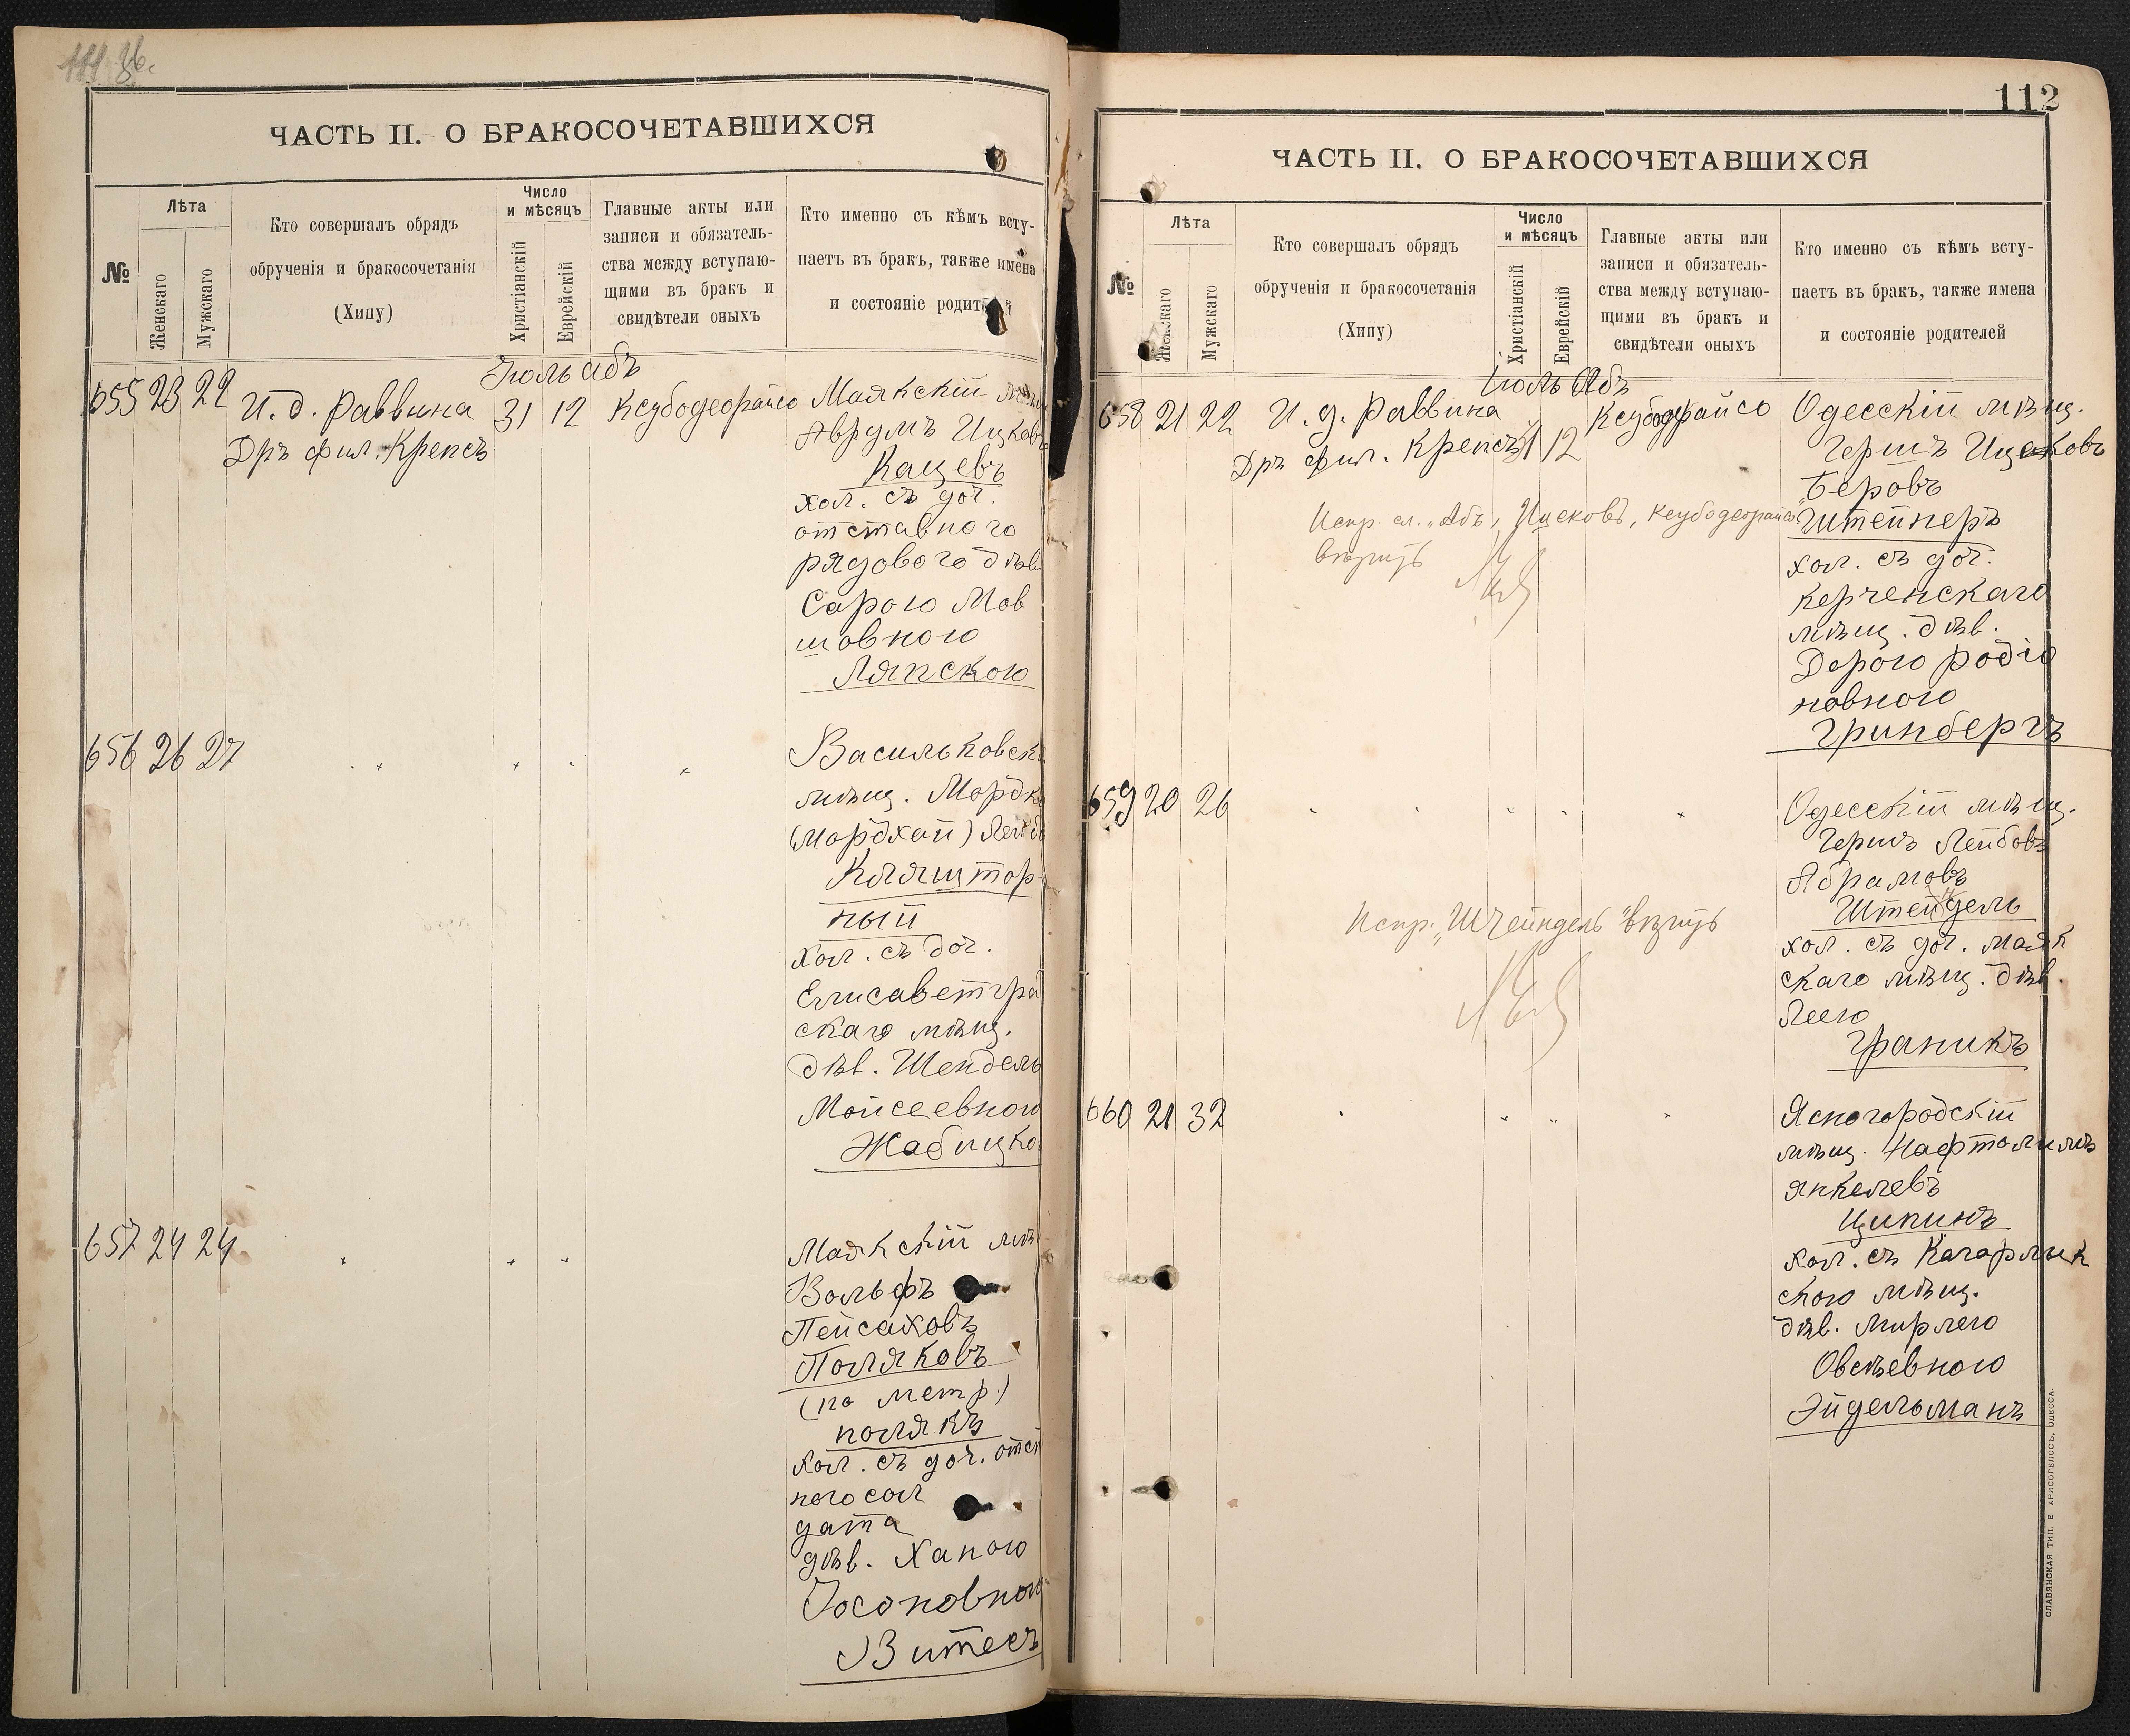 111 зв.
ЧАСТЬ II. О БРАКОСОЧЕТАВШИХСЯ
№
Лѣта
Женскаго
Мужскаго
Кто совершалъ обрядъ
обрученія и бракосочетанія
(Хипу)
Число
и мѣсяцъ
Христіанскій
Еврейскій
Главные акты или
записи и обязатель-
ства между вступаю-
щими въ бракъ и
свидѣтели оныхъ
Кто именно съ кѣмъ всту-
паетъ въ бракъ, также имена
и состояніе родителей
Іюль Абъ
655 23 22 И. д. Раввина 31 12 Ксубодеорайсо
Дръ фил. Крепсъ
Маякскій
Аврумъ Ицковъ
Кацевъ
хол. съ доч.
отставного
рядового дѣв
Сарою Мов
шовною
Ляпскою
656 26 27
Васильковскі
мѣщ. Мордко
(Мордхай) Лейбо
Кляштор-
ный
хол. съ доч.
Елисаветгра
скаго мѣщ.
дѣв. Шендель
Мойсеевною
Жабицко
657 24 24
Маякскій мѣ
Вольфъ
Пейсаховъ
Поляковъ
(по метр.)
полякъ
хол. съ доч. отст
ного сол
дата
дѣв. Ханою
Іосоновною
Витесъ
112
ЧАСТЬ II. О БРАКОСОЧЕТАВШИХСЯ
№
Лѣта
Женскаго
Мужскаго
Кто совершалъ обрядъ
обрученія и бракосочетанія
(Хипу)
Число
и мѣсяцъ
Христіанскій
Еврейскій
Главные акты или
записи и обязатель-
ства между вступаю-
щими въ бракъ и
свидѣтели оныхъ
Кто именно съ кѣмъ всту-
паетъ въ бракъ, также имена
и состояніе родителей
Іюль Абъ
658 21 22 И. д. Раввина 31 12 Ксубодеорайсо
Дръ фил. Крепсъ
Одесскій мѣщ.
Гершъ Ицековъ
Беровъ
Штейнеръ
хол. съ доч.
Керченскаго
мѣщ. дѣв.
Дорою Родіо
новною
Гринбергъ
Испр. сл. „Абъ, Ицековъ, ксубодеорайсо"
вѣрить
659 20 26
Одесскій мѣщ.
Гершъ Лейбовъ
Абрамовъ
Штейндель
хол. съ доч. Маяк
скаго мѣщ. дѣв.
Леею
Граникъ
Испр. „Штейндель" вѣрить
660 21 32
Ясногородскій
мѣщ. Нафтолимъ
Янкелевъ
Ципинъ
хол. съ Кагарлык
скою мѣщ.
дѣв. Мирлею
Овсѣевною
Эйдельманъ
СЛАВЯНСКАЯ ТИП. Е ХРИСОГЕЛОСЪ, ОДЕССА.